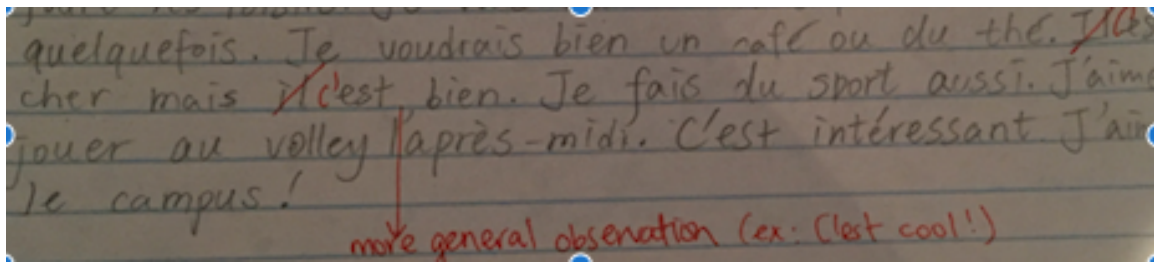 quelquefois. Je voudrais bien un café ou du thé.
cher mais il c'est bien. Je fais du sport aussi. J'aime
jouer au volley l'après-midi. C'est intéressant J'aim
le campus!
more general observation (ex: C'est cool!)